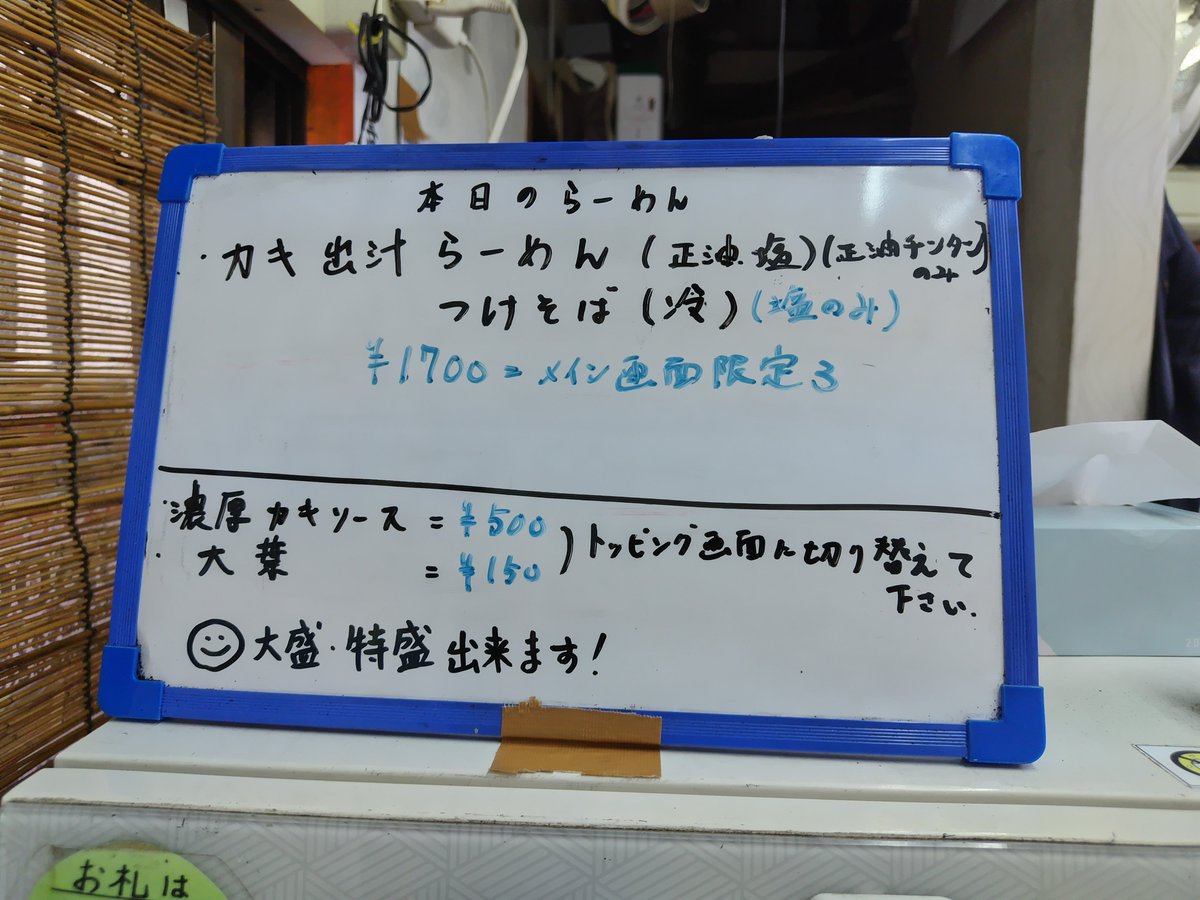 本日のらーめん
・カキ出汁らーめん(正油・塩)(正油チンタンのみ)
つけそば(冷)(塩のみ)
¥1700=メイン画面限定3
・濃厚カキソース=¥500
・大葉=¥150
)トッピング画面に切り替えて下さい.
大盛・特盛出来ます!
お札は